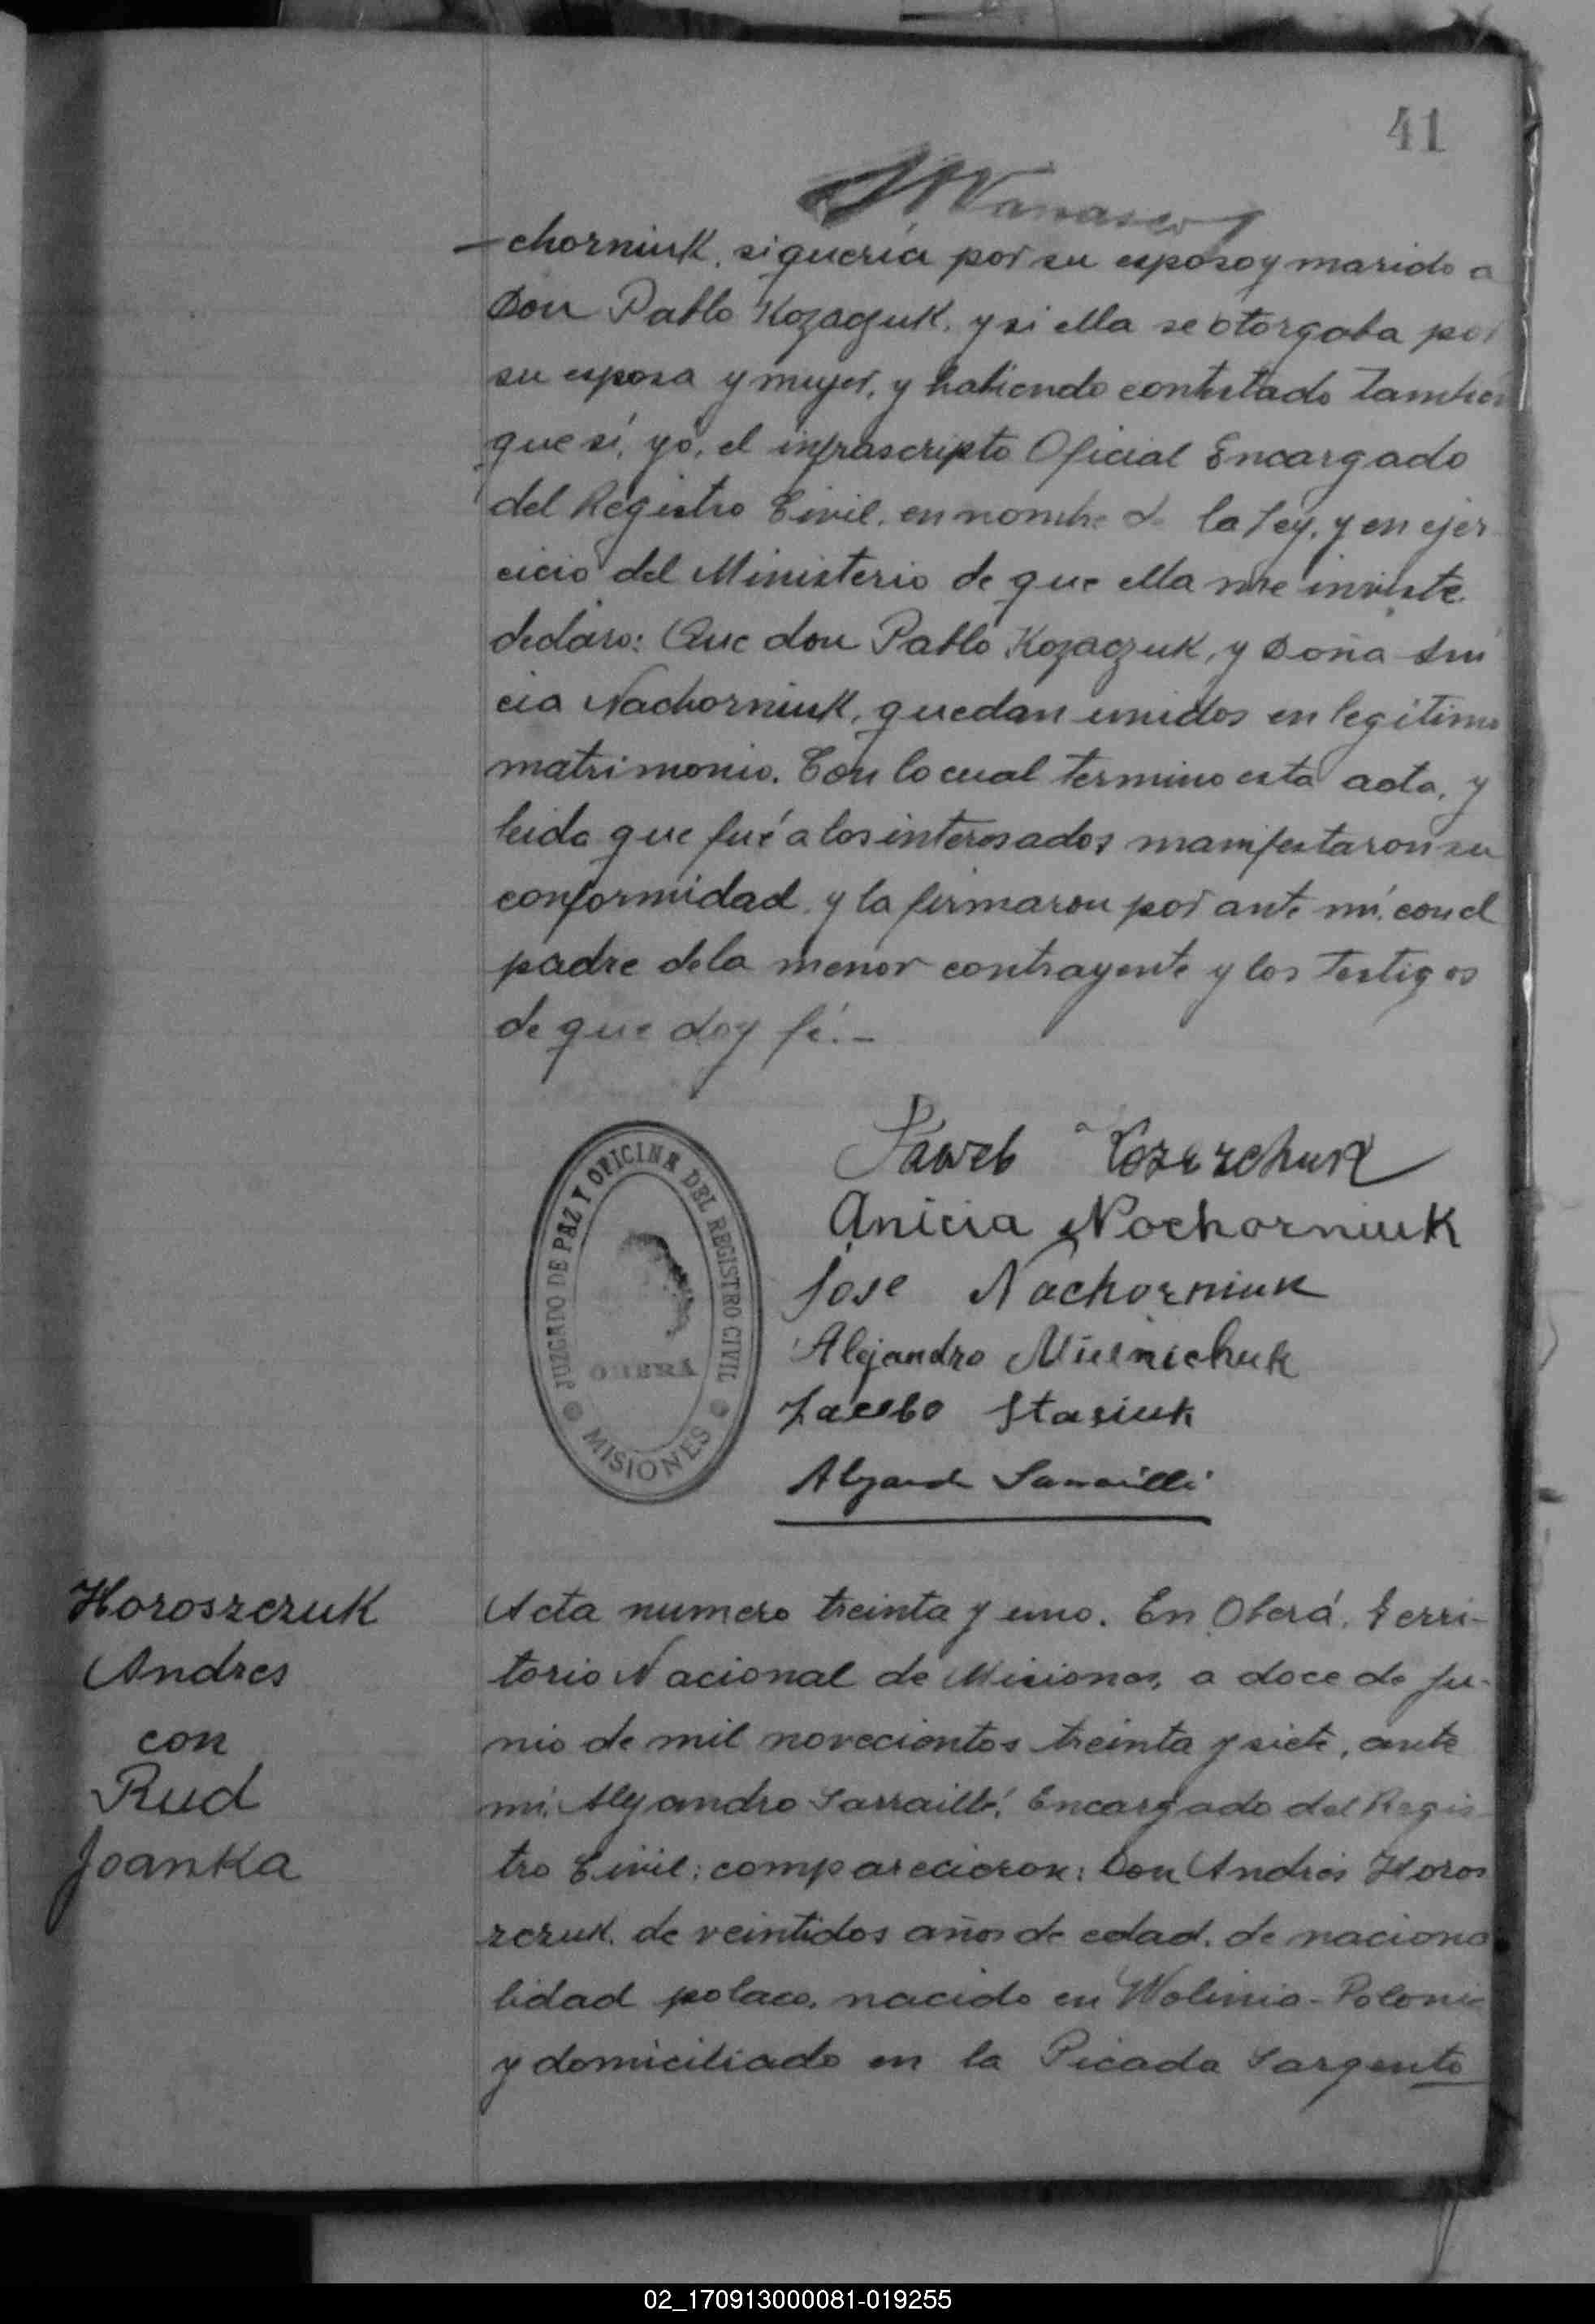 41
-chorniuk, si quería por su esposo y marido a
Don Pablo Kozaczuk, y si ella se otorgaba por
su esposa y mujer, y habiendo contestado también
que sí, yo, el infrascripto Oficial Encargado
del Registro Civil, en nombre de la Ley, y en ejer-
cicio del Ministerio de que ella me inviste
declaro: Que don Pablo Kozaczuk, y Doña Ani
cia Nachorniuk, quedan unidos en legítimo
matrimonio. Con lo cual termino esta acta, y
leida que fué a los interesados manifestaron su
conformidad, y la firmaron por ante mí, con el
padre de la menor contrayente y los testigos
de que doy fé.-
Anicia Nochorniuk
Jose Nachorniuk
Alejandro Mielnichuk
Jacobo Stasiuk
JUZGADO DE PAZ Y OFICINA DEL REGISTRO CIVIL
OBERÁ
MISIONES
Horoszczuk
Andres
con
Rud
Joanka
Acta numero treinta y uno. En Oberá, Terri-
torio Nacional de Misiones, a doce de Ju-
nio de mil novecientos treinta y siete, ante
mí, Alejandro Sarraillé, Encargado del Regis-
tro Civil: comparecieron: Don Andrés Horos
zczuk, de veintidos años de edad, de naciona
lidad polaco, nacido en Wolinia-Polonia
y domiciliado en la Picada Sargento
02_170913000081-019255